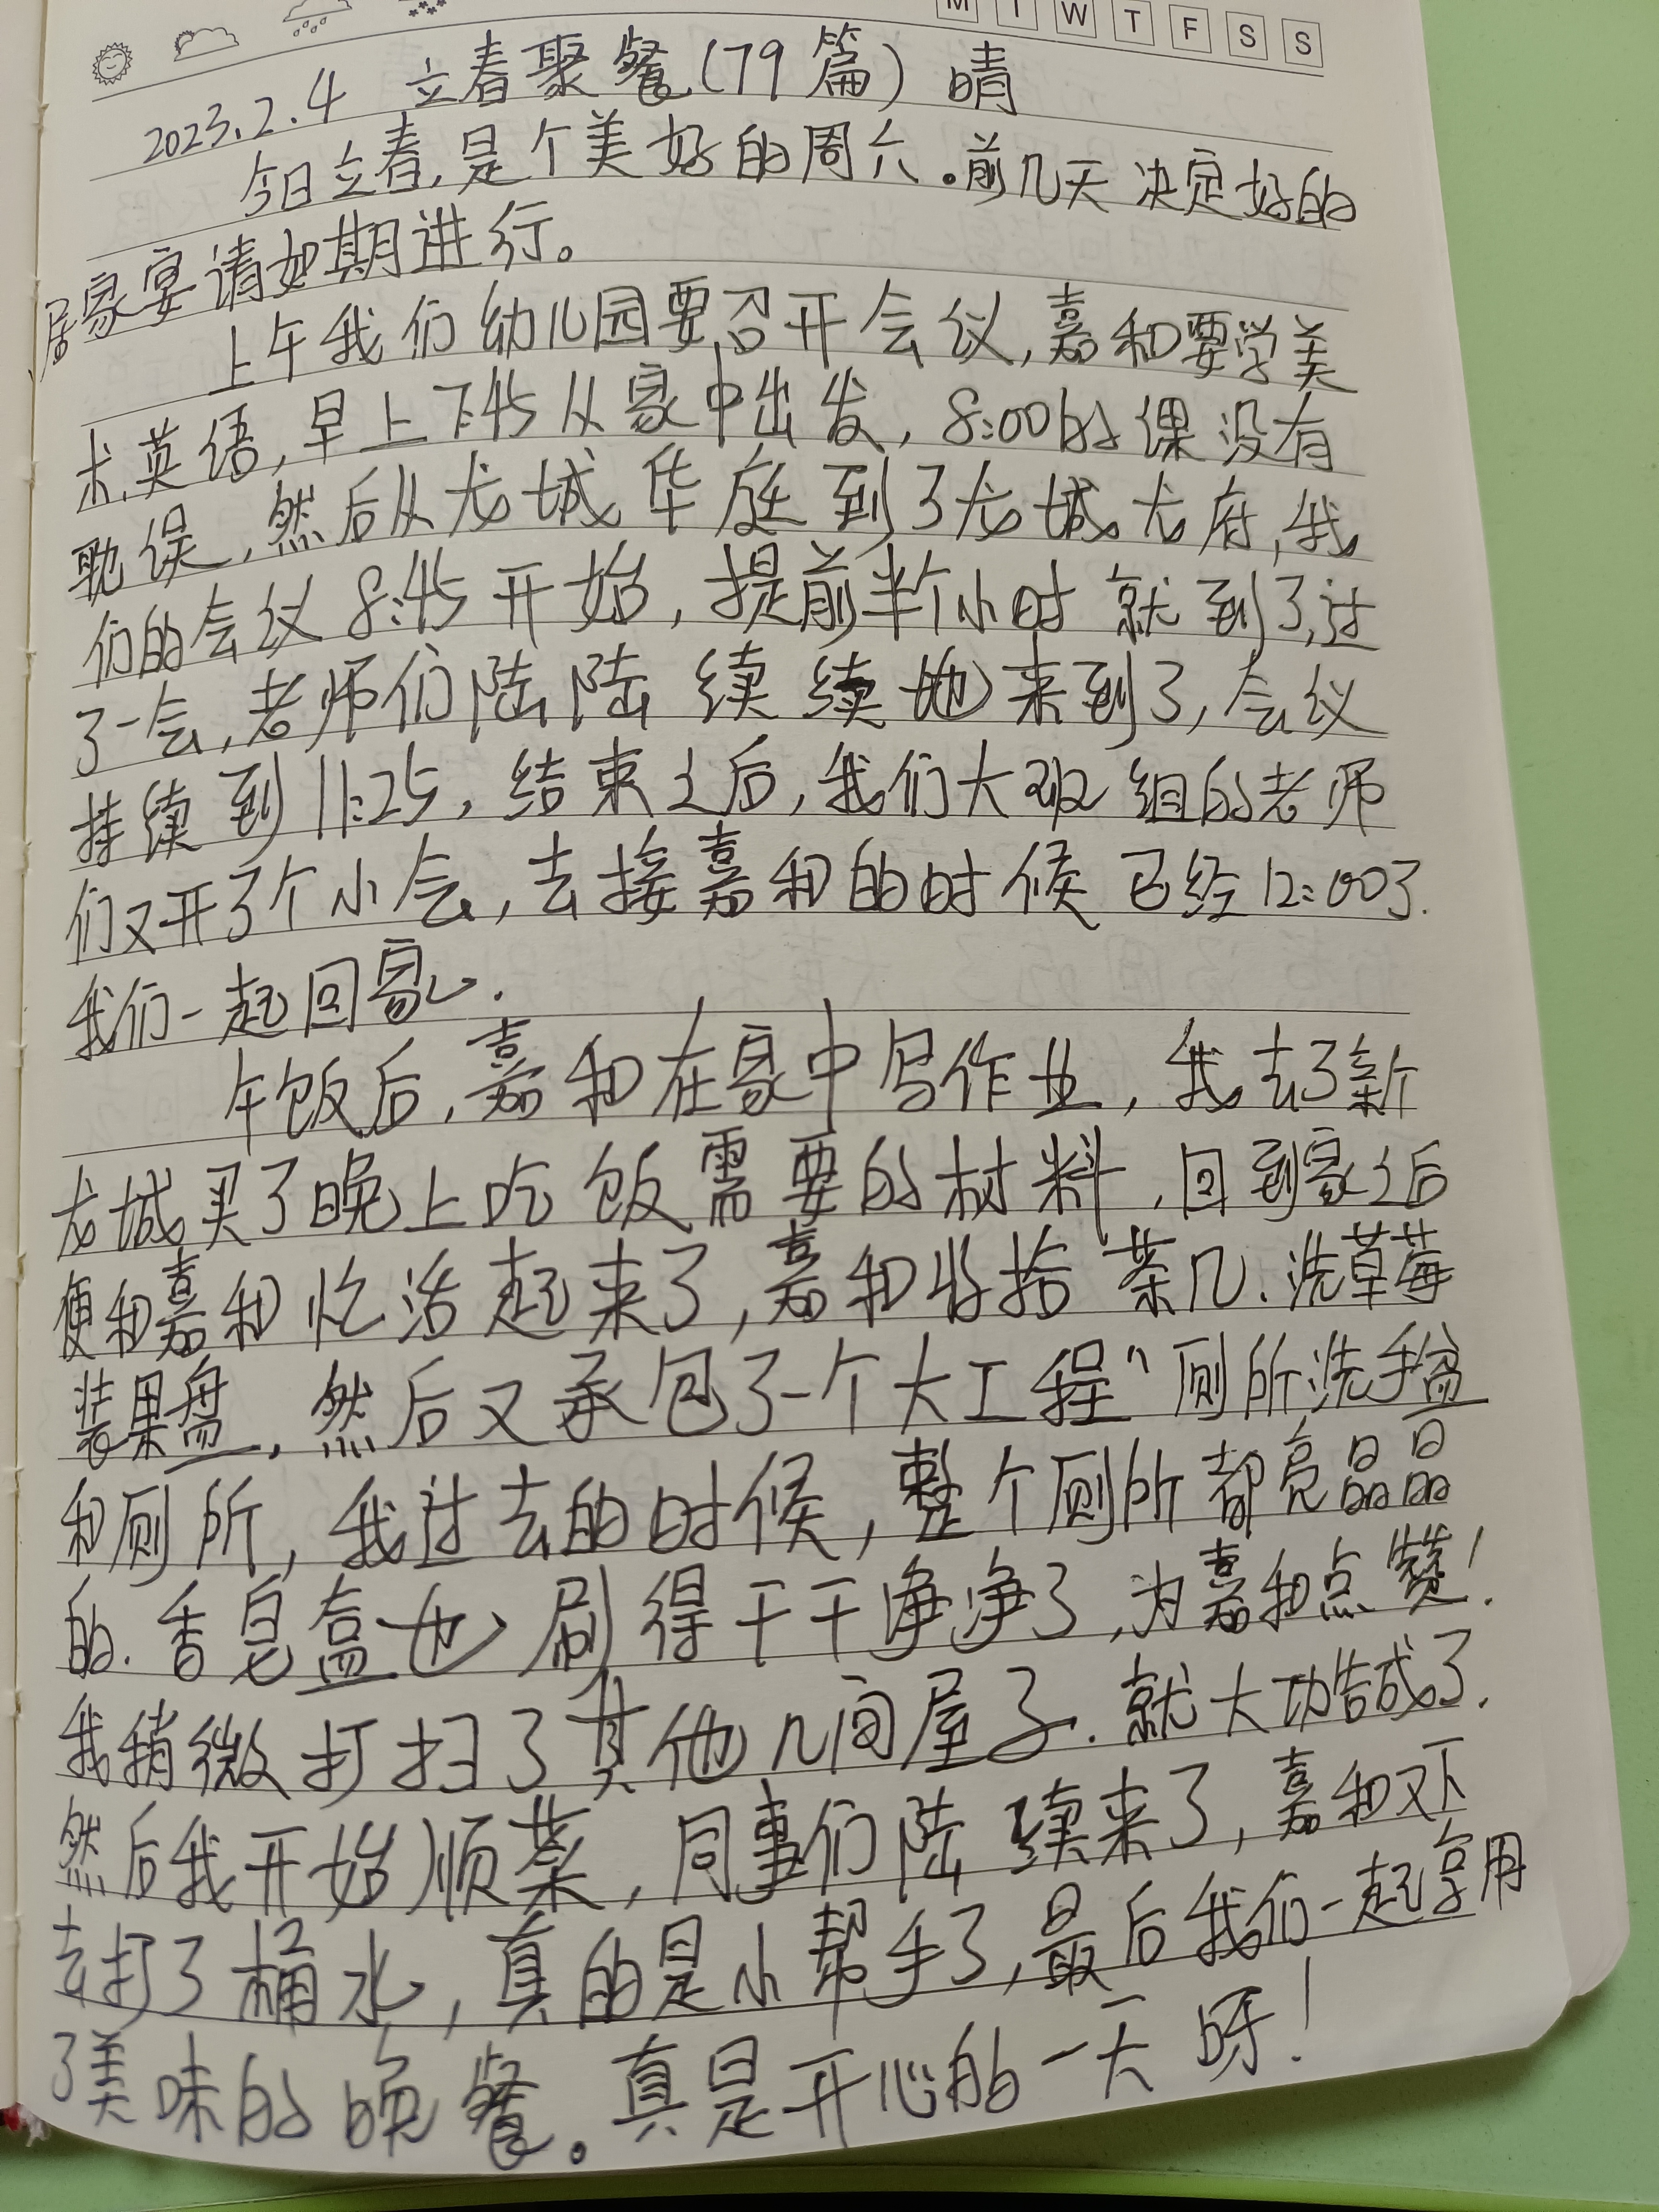 M T W T F S S
2023.2.4 立春聚餐(79篇) 晴
今日立春,是个美好的周六。前几天决定好的
居家宴请如期进行。
上午我们幼儿园要召开会议,嘉和要学美
术、英语,早上7:45从家中出发,8:00的课没有
耽误,然后从龙城华庭到了龙城龙府,我
们的会议8:45开始,提前半个小时就到了,过
了一会,老师们陆陆续续地来到了,会议
持续到11:25,结束之后,我们大班组的老师
们又开了个小会,去接嘉和的时候已经12:00了.
我们一起回家.
午饭后,嘉和在家中写作业,我去了新
龙城买了晚上吃饭需要的材料,回到家之后
便和嘉和忙活起来了,嘉和收拾茶几.洗草莓
装果盘,然后又承包了一个大工程“厕所洗手盆
和厕所,我过去的时候,整个厕所都亮晶晶
的.香皂盒也刷得干干净净了,为嘉和点赞!
我稍微打扫了其他几间屋子.就大功告成了.
然后我开始顺菜,同事们陆续来了,嘉和又下
去打了桶水,真的是小帮手了,最后我们一起享用
了美味的晚餐。真是开心的一天呀!